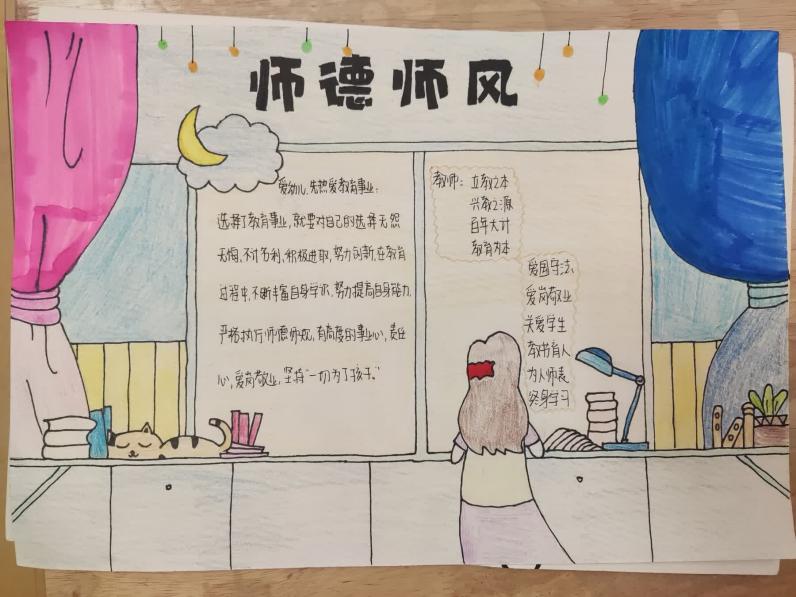 师德师风
爱幼儿，先热爱教育事业：
选择了教育事业，就要对自己的选择无怨
无悔，不计名利，积极进取，努力创新，在教育
过程中，不断丰富自身学识，努力提高自身能力，
严格执行师德师规，有高度的事业心，责任
心，爱岗敬业，坚持“一切为了孩子。”
教师：立教之本
兴教之源
百年大计
教育为本
爱国守法、
爱岗敬业
关爱学生
教书育人
为人师表
终身学习